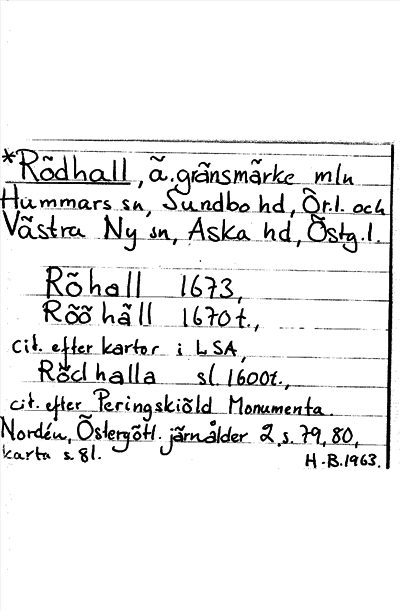 *Rödhall, ä. gränsmärke mln
Hummars sn, Sundbo hd, Ör.l. och
Västra Ny sn, Aska hd, Östg.l.
Röhall 1673,
Rööhäll 1670t.,
cit. efter kartor i LSA,
Rödhalla sl. 1600t.,
cit. efter Peringskiöld Monumenta.
Nordén, Östergötl. järnålder 2, s. 79, 80,
karta s. 81.
H.B. 1963.